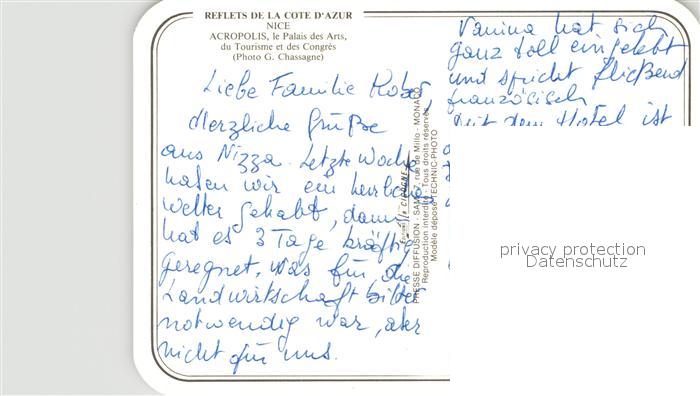 REFLETS DE LA COTE D'AZUR
NICE
ACROPOLIS, le Palais des Arts,
du Tourisme et des Congrès
(Photo G. Chassagne)
Liebe Familie
Herzliche Grüße
aus Nizza. Letzte Woche
haben wir ein herrliches
Wetter gehabt, dann
hat es 3 Tage kräftig
geregnet, was für die
Landwirtschaft bitter
notwendig war, aber
nicht für uns.
Vanina hat sich
ganz toll eingelebt
und spricht fließend
französisch
Mit dem Hotel ist
PRESSE DIFFUSION - SAM - 7, rue de Millo - MONACO
Reproduction interdite - Tous droits réservés
Modèle déposé TECHNIC-PHOTO
privacy protection
Datenschutz